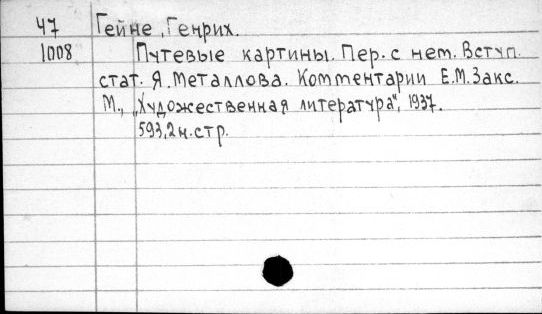 47 Гейне, Генрих.
1008 Путевые картины. Пер. с нем. Вступ.
стат. Я. Металлова. Комментарии Е.М. Закс.
М., „Художественная литература", 1937.
593,2н.стр.